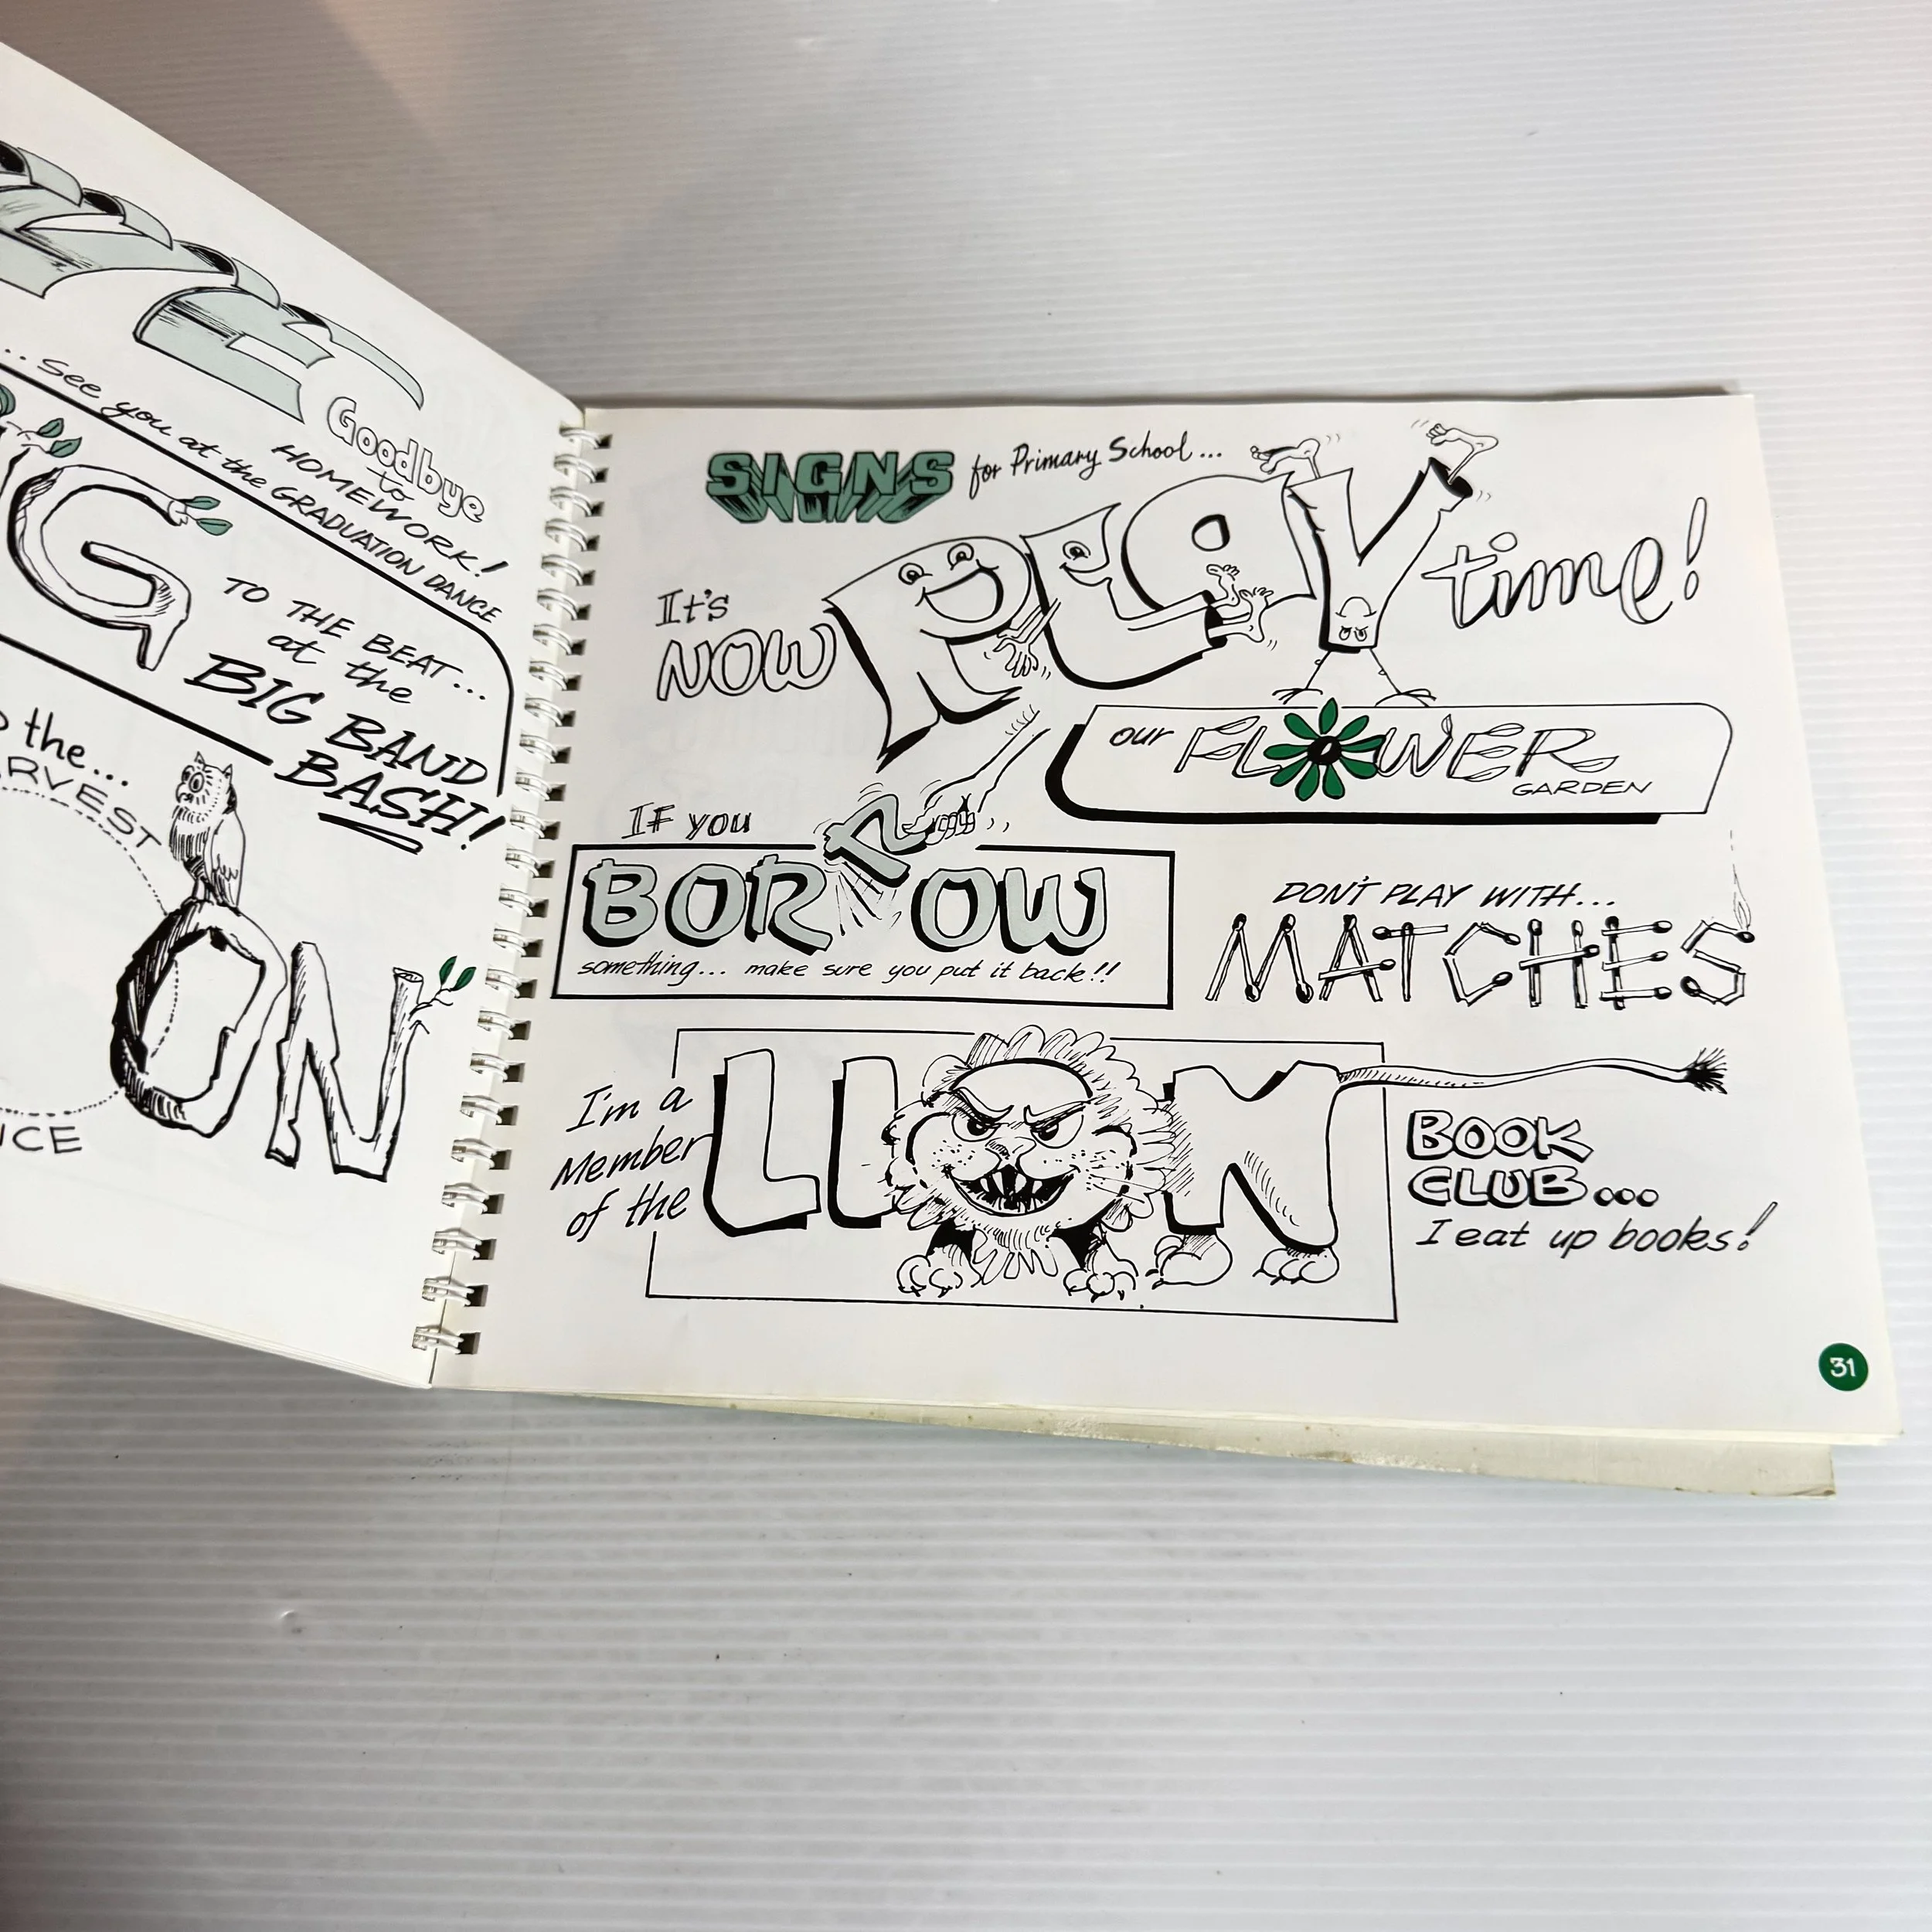 Goodbye
to
HOMEWORK!
...see you at the GRADUATION DANCE
G
TO THE BEAT...
at the
BIG BAND
BASH!
the...
ON
SIGNS for Primary School...
It's
NOW PLAY time!
our FLOWER
GARDEN
IF you
BORROW
something... make sure you put it back!!
DON'T PLAY WITH...
MATCHES
I'm a
Member
of the
LION
BOOK
CLUB...
I eat up books!
31